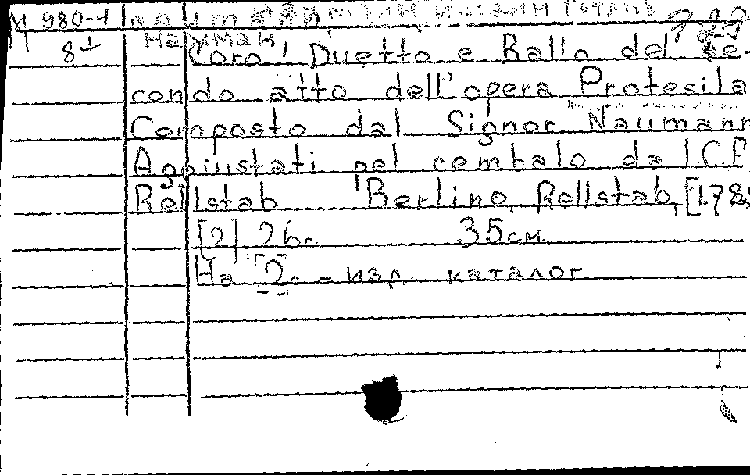 М 980-1
8 1
Науман
Coro, Duetto e Ballo del Se-
condo atto dell'opera Protesila
Composto dal Signor Naumann
Aggiustati pel cembalo da I.C.F.
Rellstab Berlino, Rellstab, [178
[2] 26с. 35см
На 2 с. - изд. каталог